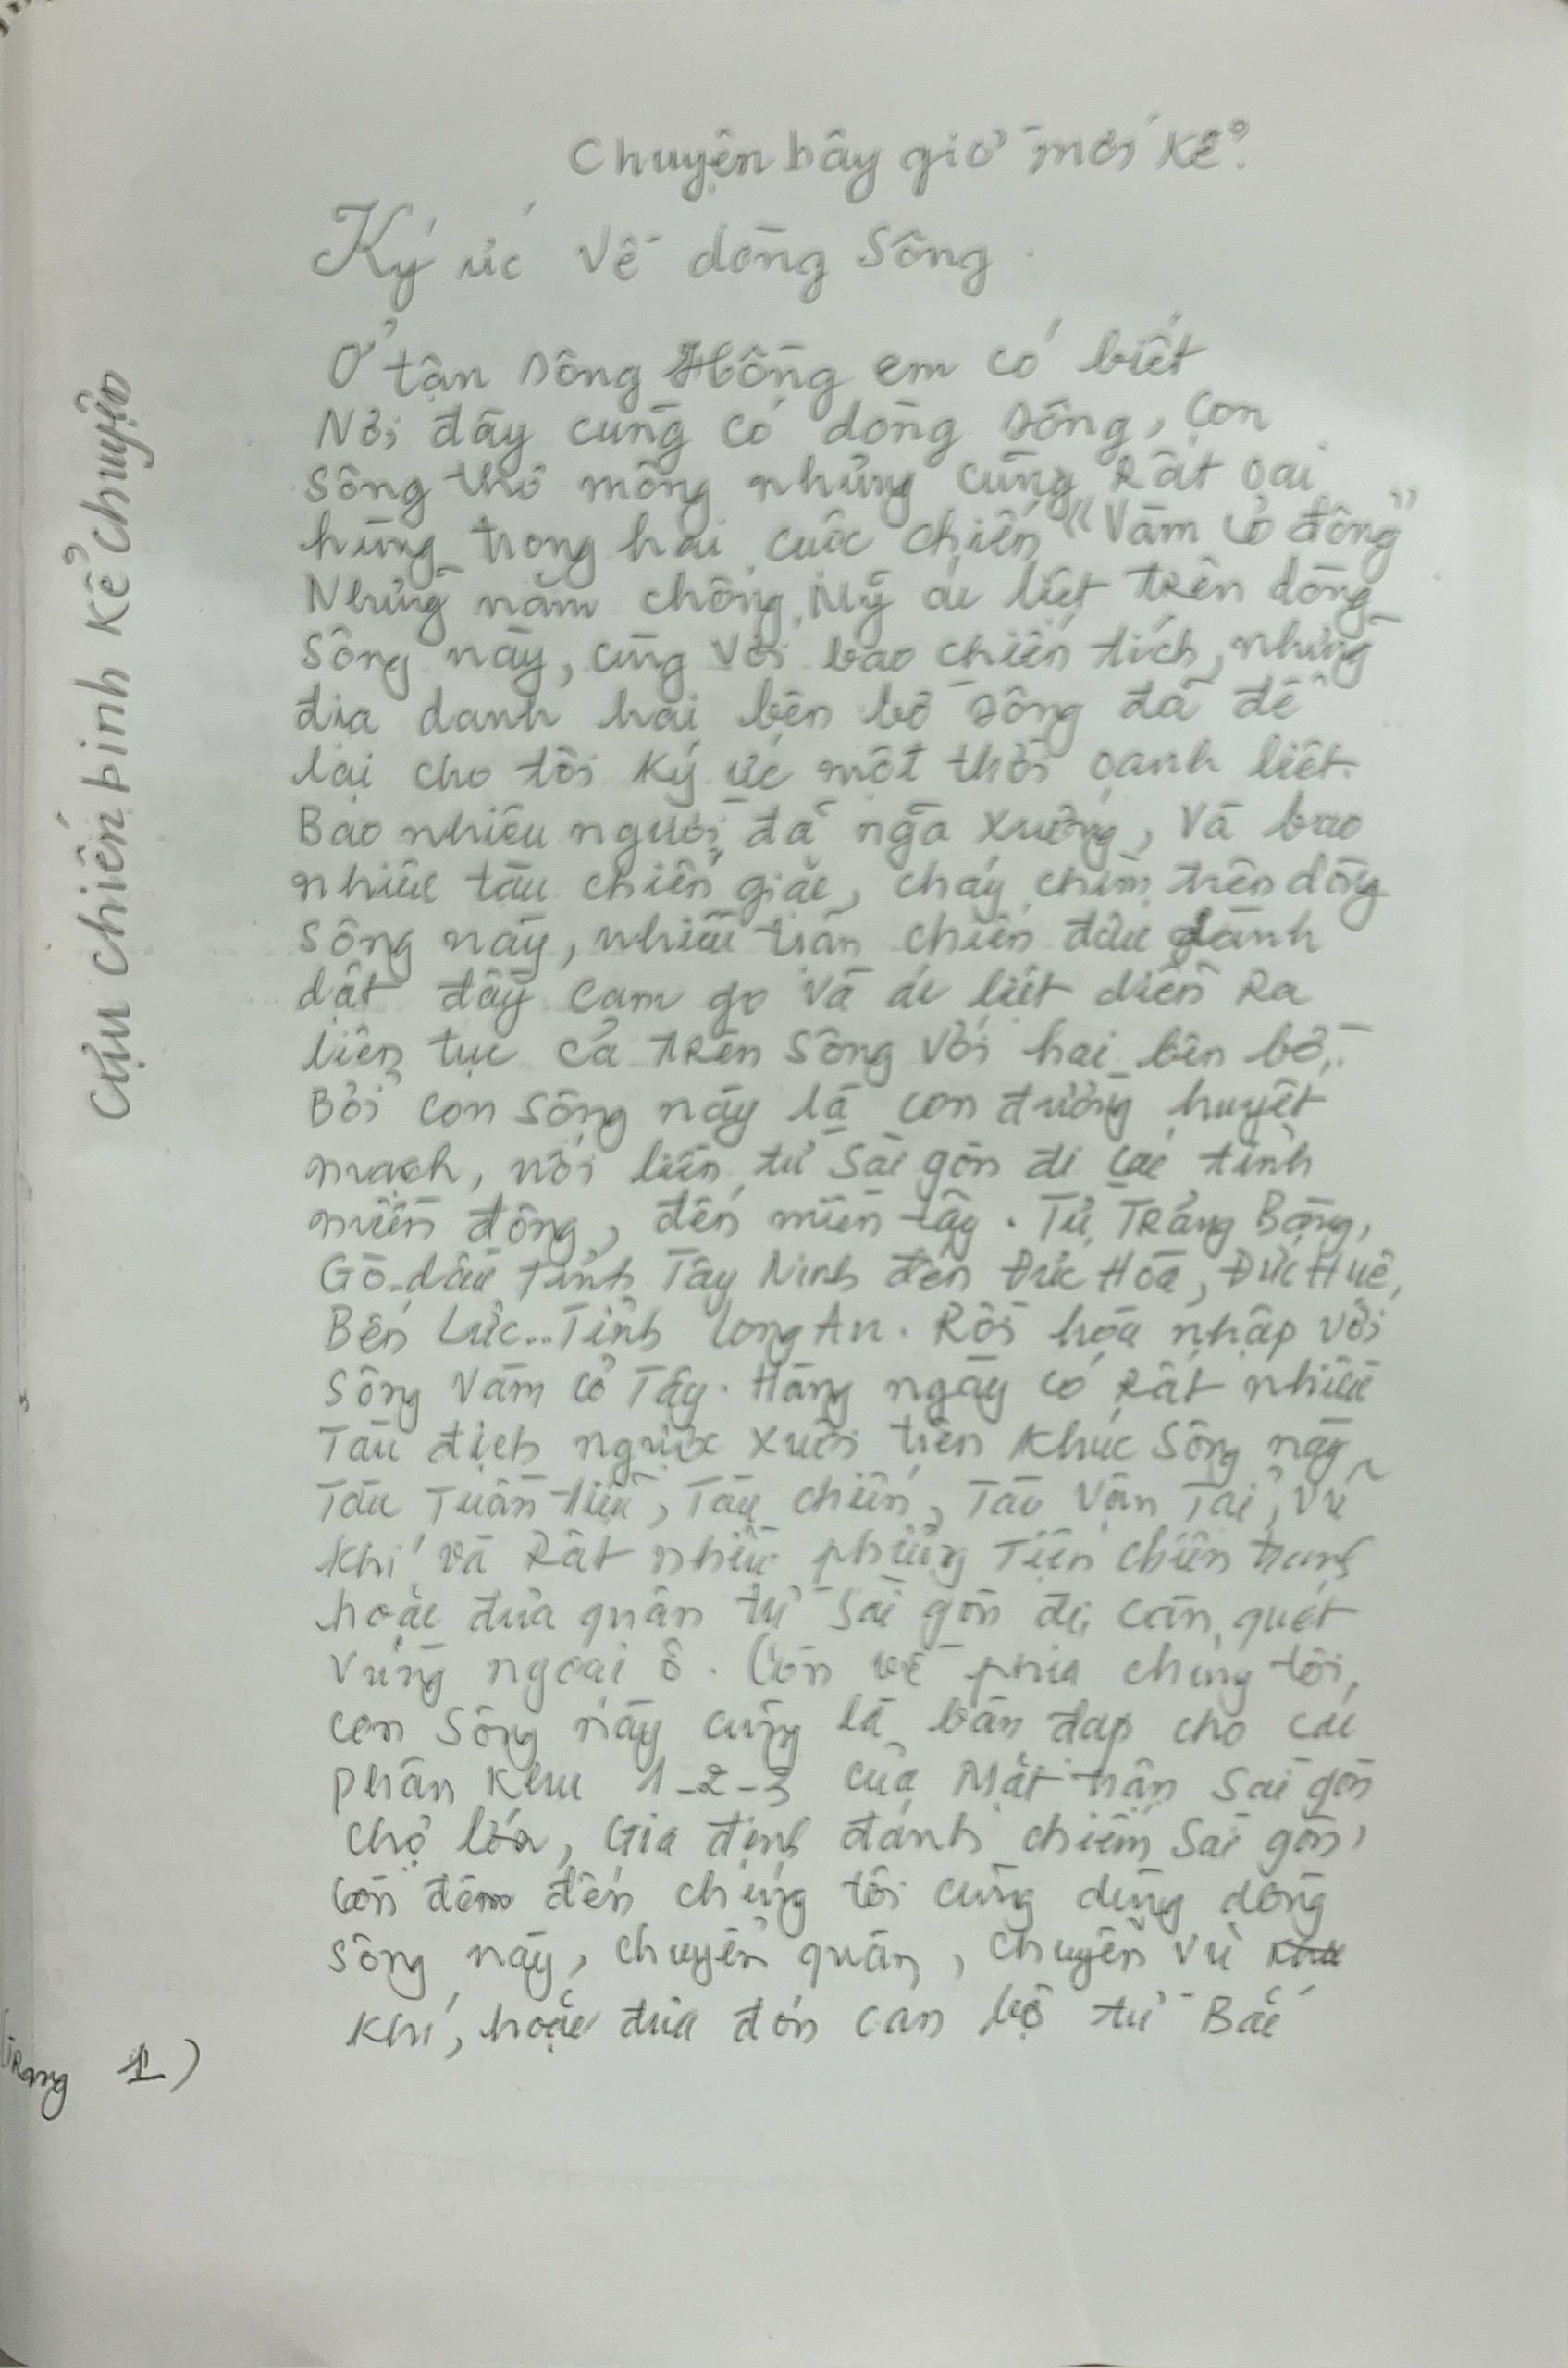 Chuyện bây giờ mới kể.
Ký ức về dòng sông.
Ở tận sông Hồng em có biết
Nơi đây cũng có dòng sông, con
sông thơ mộng nhưng cũng rất oai
hùng trong hai cuộc chiến "Vàm cỏ đông"
Những năm chống Mỹ ác liệt trên dòng
sông này, cùng với bao chiến tích, những
địa danh hai bên bờ sông đã để
lại cho tôi ký ức một thời oanh liệt.
Bao nhiêu người đã ngã xuống, và bao
nhiêu tàu chiến giặc, cháy chìm trên dòng
sông này, nhiều trận chiến đấu giành
dật đầy cam go và ác liệt diễn ra
liên tục cả trên sông với hai bên bờ,.
Bởi con sông này là con đường huyết
mạch, nối liền từ Sài gòn đi các tỉnh
miền đông, đến miền tây. Từ Trảng Bàng,
Gò dầu tỉnh Tây Ninh đến Đức Hòa, Đức Huệ,
Bến Lức... Tỉnh Long An. Rồi hòa nhập với
sông Vàm cỏ Tây. Hàng ngày có rất nhiều
Tàu địch ngược xuôi trên khúc sông này
Tàu Tuần tiễu, Tàu chiến, Tàu Vận Tải, Vũ
khí và rất nhiều phương Tiện chiến tranh
hoặc đưa quân từ Sài gòn đi càn quét
vùng ngoại ô. Còn về phía chúng tôi,
con sông này cũng là bàn đạp cho các
phân khu 1-2-3 của Mặt trận Sài gòn
chợ lớn, Gia định đánh chiếm Sài gòn,
Còn đêm đến chúng tôi cũng dùng dòng
sông này, chuyển quân, chuyển vũ
khí, hoặc đưa đón cán bộ từ Bắc
Cựu chiến binh kể chuyện
(Trang 1)